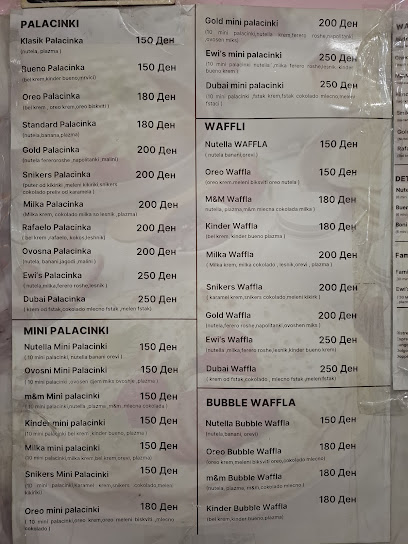 PALACINKI
Klasik Palacinka 150 Ден
(nutela, plazma )
Bueno Palacinka 150 Ден
(bel krem,kinder bueno,mrvici)
Oreo Palacinka 180 Ден
(bel krem , oreo krem,oreo biskviti )
Standard Palacinka 180 Ден
(nutela,banana,plazma)
Gold Palacinka 200 Ден
(nutela fereroroshe,napolitanki ,malini)
Snikers Palacinka 200 Ден
(puter od kikiriki ,meleni kikiriki,snikers
cokolado preliv od karamela )
Milka Palacinka 200 Ден
(Milka krem, cokolado milka so lesnik ,plazma)
Rafaelo Palacinka 200 Ден
( bel krem ,rafaelo, kokos,lesnik)
Ovosna Palacinka 200 Ден
(nutela, banani,jagodi ,malini )
Ewi's Palacinka 250 Ден
(nutela,milka,ferero roshe,lesnik )
Dubai Palacinka 250 Ден
( krem od fstak ,cokolado mlecno fstak ,melen fstak)
MINI PALACINKI
Nutella Mini Palacinki 150 Ден
( 10 mini palacinki, nutella banani orevi )
Ovosni Mini Palacinki 150 Ден
( 10 mini palacinki ,ovosen djem milka ovoshje, plazma )
m&m Mini palacinki 150 Ден
( 10 mini palacinki,nutella ,plazma, m&m, mlecno cokolado )
Kinder mini palacinki 150 Ден
(10 mini palacinki bel krem kinder bueno, plazma )
Milka mini palacinki 150 Ден
( 10 mini palacinki,milka krem,bel krem,oreor, plazma)
Snikers Mini Palacinki 150 Ден
( 10 mini palacinki,karamel krem,snikers cokolado,meleni
kikiriki)
Oreo mini palacinki 180 Ден
( 10 mini palacinki,oreo krem,oreo meleni biskviti ,mlecno
cokolado )
Gold mini palacinki 200 Ден
(10 mini palacinki,nutela krem,ferero roshe,napolitanki
,ovosen miks)
Ewi's mini palacinki 200 Ден
(10 mini palacinki nutella ,milka ferero roshe,lesnik, kinder
bueno krem )
Dubai mini palacinki 250 Ден
(10 mini palacinki ,fstak krem,fstak cokolado mlecno,meleni
fstaci )
WAFFLI
Nutella WAFFLA 150 Ден
( nutela banani,orevi )
Oreo Waffla 150 Ден
(oreo krem,meleni biksviti oreo nutela )
M&M Waffla 180 Ден
nutella, plazma,m&m mlecna cokolado milka )
Kinder Waffla 180 Ден
(bel krem, kinder bueno plazma)
Milka Waffla 200 Ден
( Milka krem, milka cokolado , lesnik,orevi , plazma)
Snikers Waffla 200 Ден
( karamel krem,snikers cokolado meleni kikirik )
Gold Waffla 200 Ден
(nutela,ferero roshe,napolitanki ,ovoshen miks )
Ewi's Waffla 250 Ден
(nutella ,milka,ferero roshe,lesnik kinder bueno krem)
Dubai Waffla 250 Ден
( krem od fstak,cokolado , mlecno fstak ,melen fstak)
BUBBLE WAFFLA
Nutella Bubble Waffla 150 Ден
(nutella,banani, orevi)
Oreo Bubble Waffla 180 Ден
(oreo krem,meleni biksviti oreo,cokolado mlecno)
m&m Bubble Waffla 180 Ден
(nutela, plazma, m&m,cokolado mlecno )
Kinder Bubble Waffla 180 Ден
(bel krem,kinder bueno,plazma)